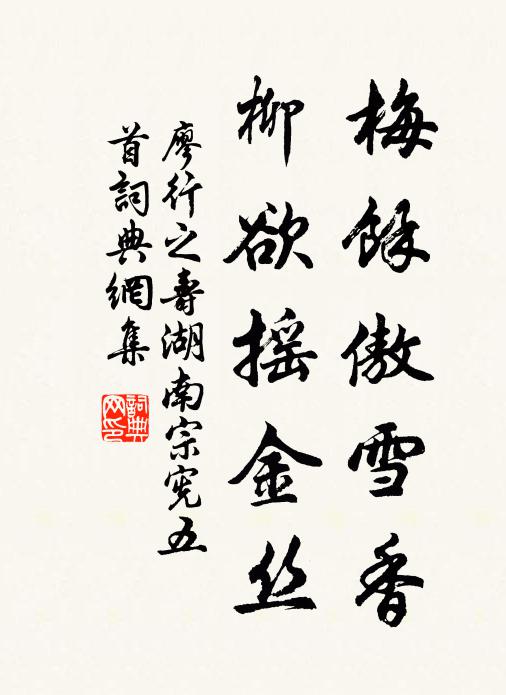 梅馀傲雪香
柳欲摇金丝
廖行之壽湖南宗宪五
首詞典網集
詞典网印